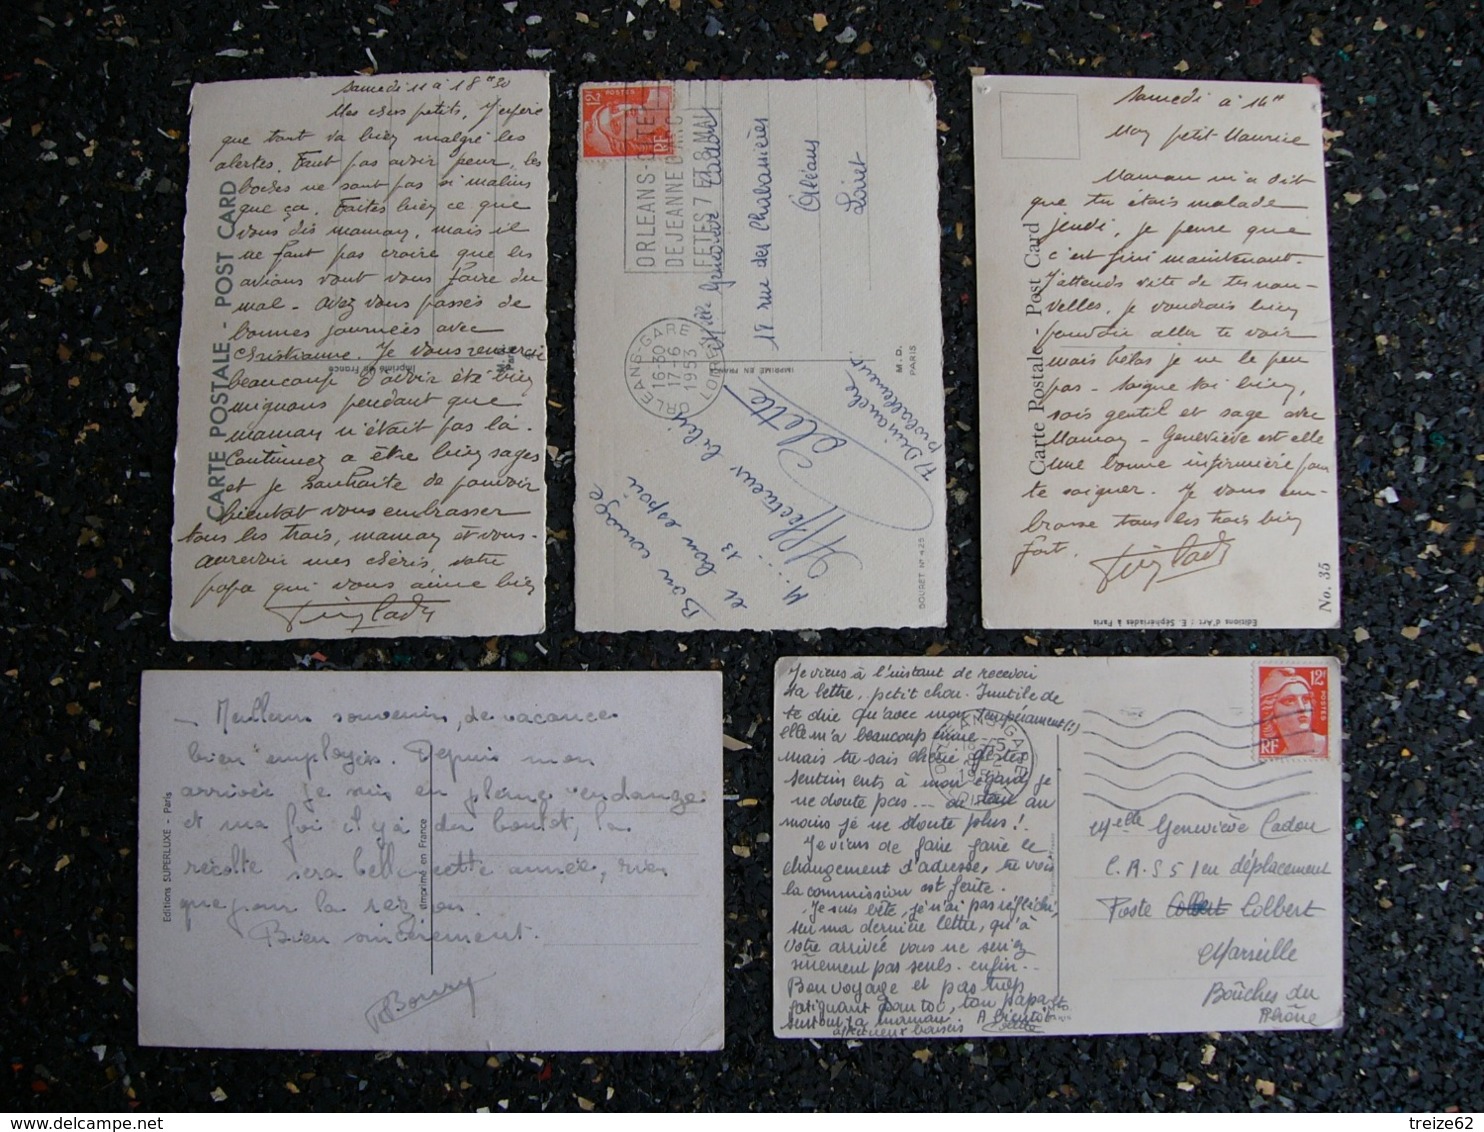 Samedi 11 à 18 H 30
Mes chers petits, J'espère
que tout va bien malgré les
alertes. Faut pas avoir peur, les
boches ne sont pas si malins
que ça. Faites bien ce que
vous dis maman, mais il
ne faut pas croire que les
avions vont vous faire du
mal - avez vous passés de
bonnes journées avec
Christianne. Je vous remercie
beaucoup d'avoir été bien
mignons pendant que
maman n'était pas là.
Continuez a être bien sages
et je souhaite de pouvoir
bientot vous embrasser
tous les trais, maman et vous-
aurevoir mes chéris, votre
papa qui vous aime bien
CARTE POSTALE - POST CARD
Imprimé en France
M. D.
Paris
12F
POSTES
RF
ORLEANS-CITE
DE JEANNE D'ARC
FETES 7 ET 8 MAI
ORLEANS-GARE
16-30
17-6
1953
LOIRET
Melle Geneviève Cadou
18 rue des Chabassières
Orléans
Loiret
IMPRIMÉ EN FRANCE
M. D.
PARIS
Bon courage
et bon espoir
Affectueux
Colette
A Dimanche
probablement
BOURET N° 425
Samedi à 14H
Mon petit Maurice
Maman m'a dit
que tu étais malade
jeudi, je pense que
c'est fini maintenant.
J'attends vite de tes nou-
velles, je voudrais bien
pouvoir aller te voir
mais hélas je ne le peu
pas - soigne toi bien,
sois gentil et sage avec
Maman - Geneviève est elle
une bonne infirmière pour
te soigner. Je vous em-
brasse tous les trois bien
fort.
Carte Postale - Post Card
No. 35
Editions d'Art : E. Séphériadès à Paris
- Meilleurs souvenirs, de vacance
bien employés. Depuis mon
arrivée je suis en pleine vendange
et ma foi il y a du boulot, la
récolte sera belle cette année, rien
que pour la région.
Bien sincèrement.
Boury
Editions SUPERLUXE - Paris
Imprimé en France
Je viens à l'instant de recevoir
ta lettre, petit chou. Inutile de
te dire qu'avec mon tempérament (!)
elle m'a beaucoup émue
mais tu sais chérie, de tes
sentiments à mon égard je
ne doute pas... du tout au
moins je ne doute plus!.
Je viens de faire faire le
changement d'adresse, tu vois
la commission est faite.
Je suis bête, je n'ai pas réfléchi,
sur ma dernière lettre, qu'à
votre arrivée vous ne seriez
sûrement pas seuls. enfin..
Bon voyage et pas trop
fatiguant pour toi, ton papa
surtout ta maman. A bientôt
affectueux baisers Colette
ORLEANS-GARE
12F
POSTES
RF
Melle Geneviève Cadou
C.R.S 51 en déplacement
Poste Colbert
Marseille
Bouches du
Rhône
treize62